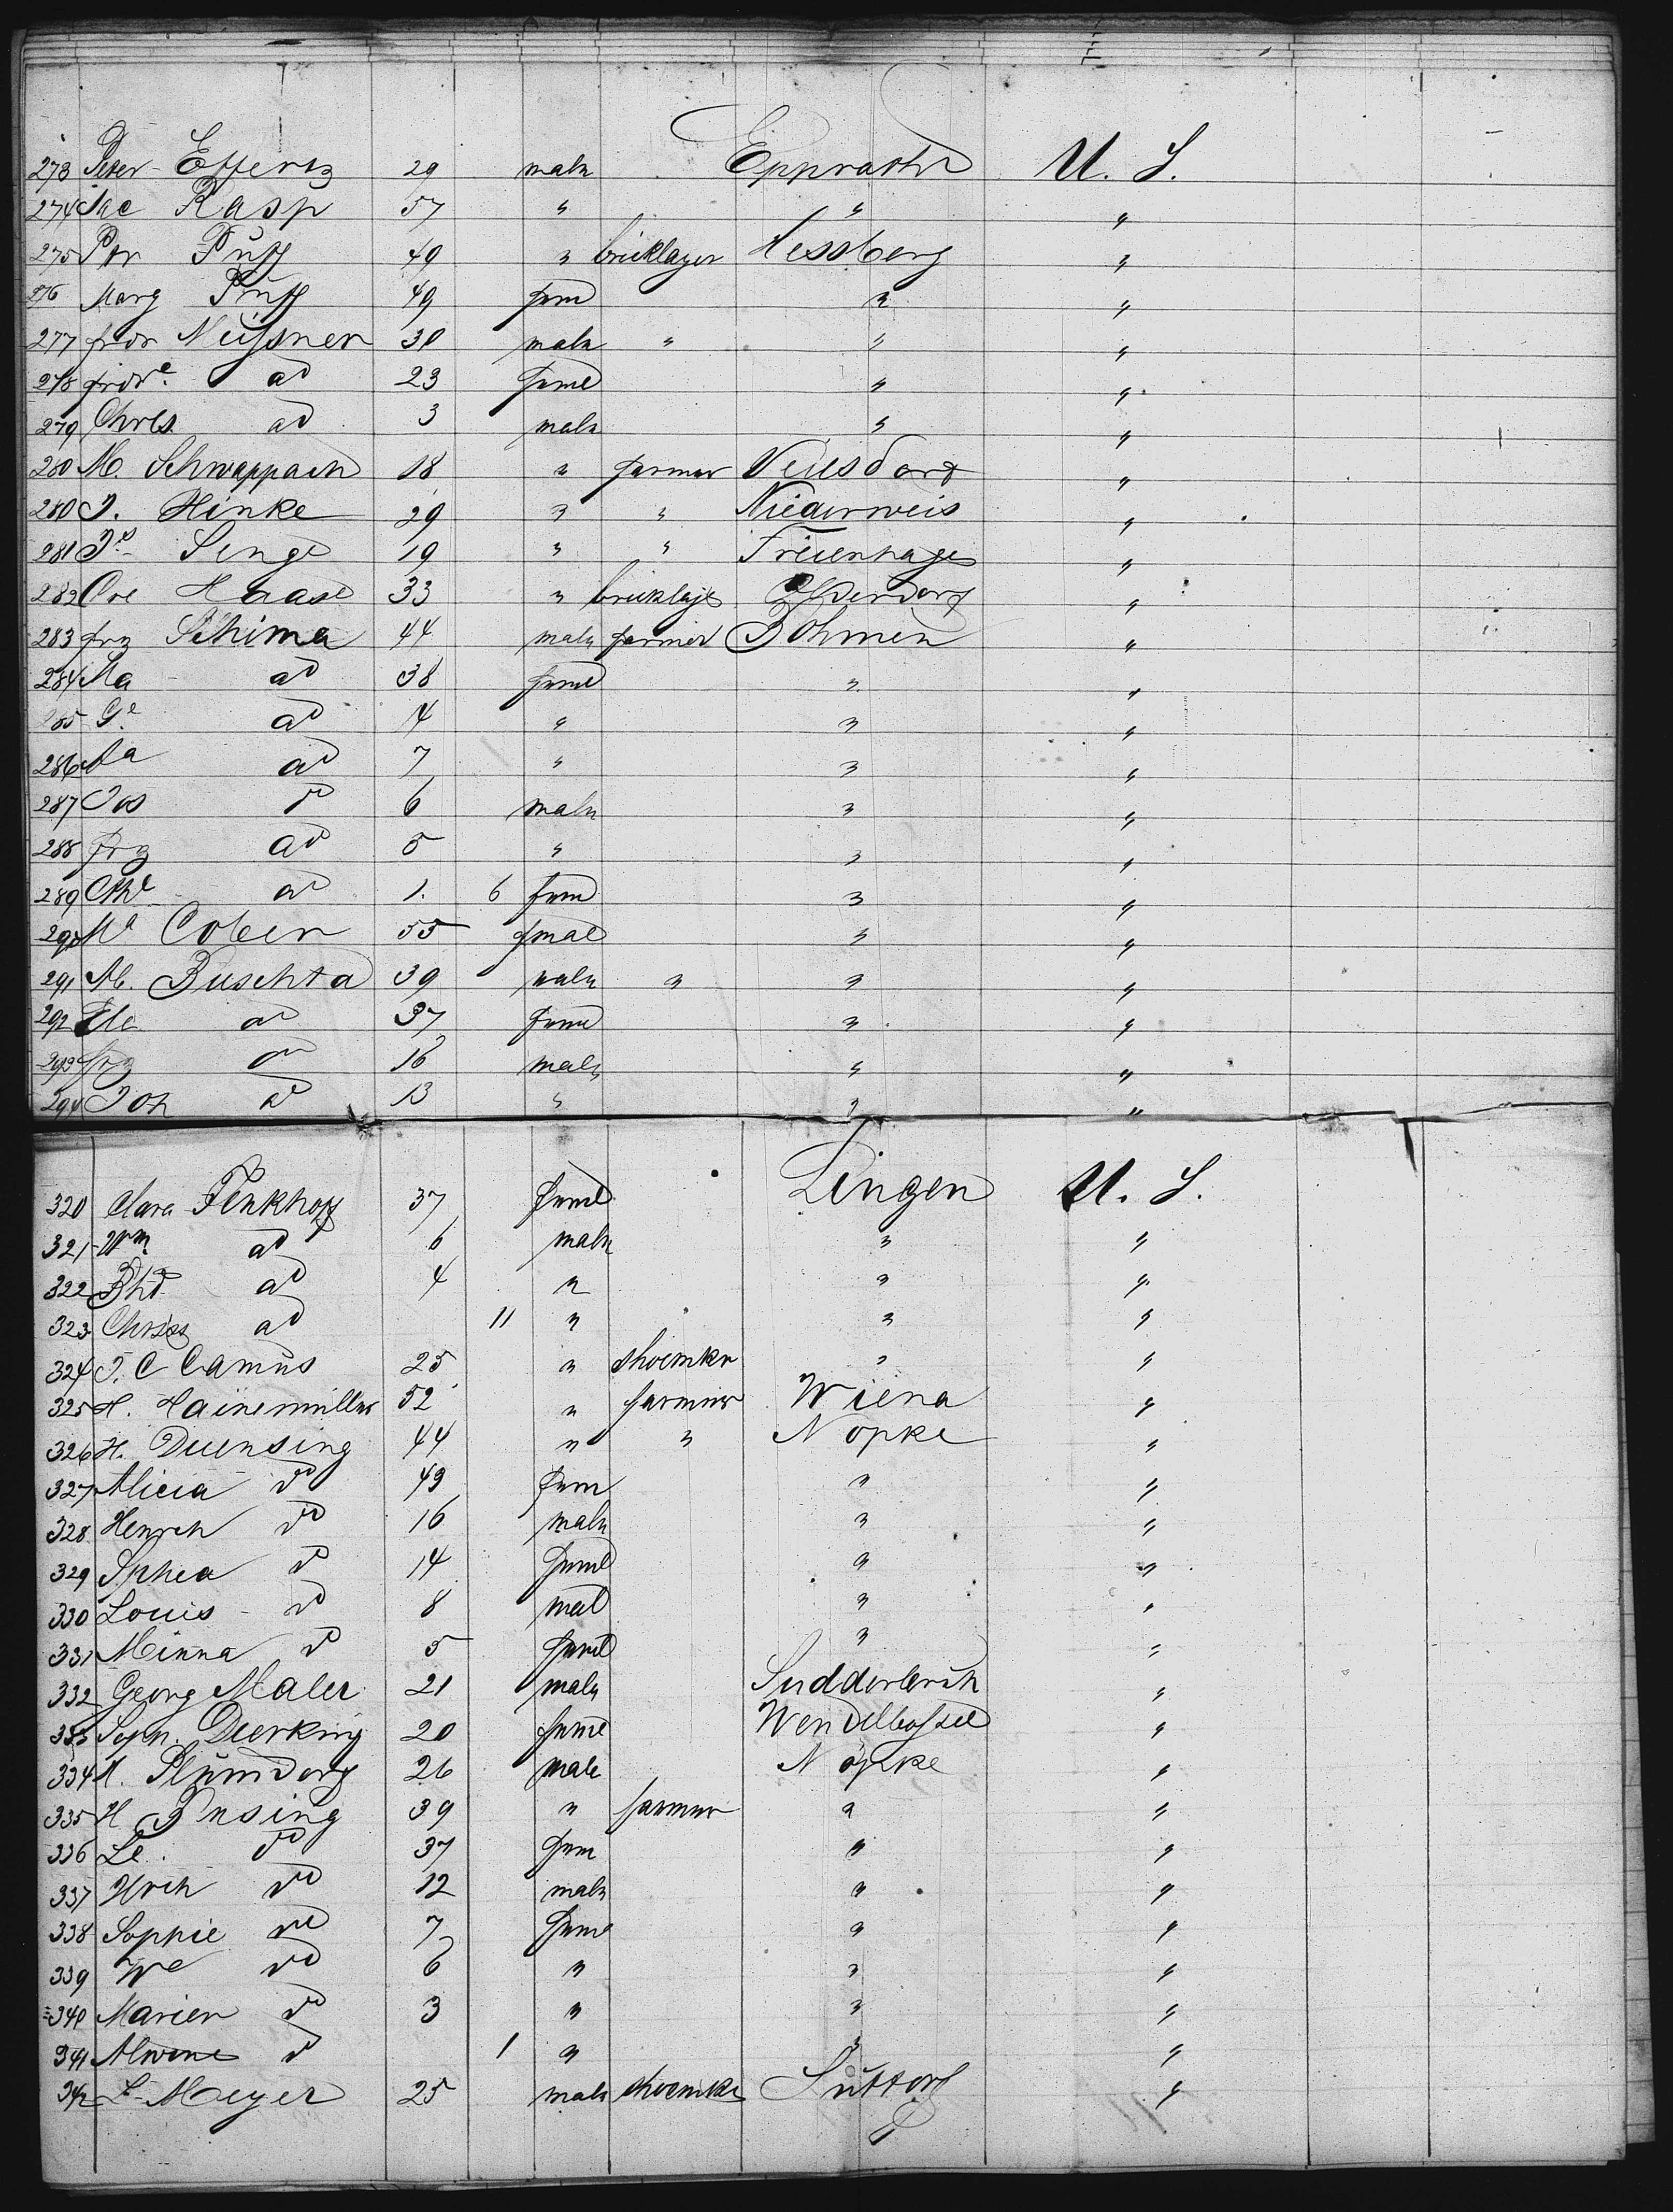 273 Peter Effertz 29 male Epprath U. S.
274 Jac Rasp 57 " " "
275 Ptr Puff 49 " bricklayer Hessberg "
276 Marg Puff 49 fem " "
277 frdr Meissner 30 male " " "
278 fridre do 23 feme " "
279 Chrls do 3 male " "
280 M. Schwappach 18 " farmer Veilsdorf "
280 J. Hinke 29 " " Niederweis "
281 Js Senge 19 " " Freienhage "
282 Cre Haase 33 " bricklaje "
283 frz Schima 44 male farmer Bohmen "
284 Ma do 38 feme " "
285 Ge do 4 " " "
286 Aa do 7 " " "
287 Jos do 6 male " "
288 frz do 5 " " "
289 Cthe do 1. 6 fem " "
290 Ma Cober 55 fmae " "
291 M. Buschta 39 male " " "
292 do 37 feme " "
293 frz do 16 male " "
294 Joh do 13 " " "
320 Clara Fenkhoff 37 feme Lingen U. S.
321 Wm do 6 male " "
322 Bhd do 4 " " "
323 do 11 " " "
324 J. C Camus 25 " shoemkr " "
325 H. Hainemüller 52 " farmer Wiena "
326 H. Duensing 44 " " Nopke "
327 Alicia do 49 fem " "
328 Henrch do 16 male " "
329 Sphea do 14 feme " "
330 Louis do 8 mal " "
331 Minna do 5 feme " "
332 Georg Maler 21 male "
333 Soph. Deerking 20 feme Wendelbostel "
334 H. Plümdorf 26 male Nöpke "
335 H Dnsing 39 " farmer " "
336 Le. do 37 fem " "
337 Hrch do 12 male " "
338 Sophie do 7 feme " "
339 We do 6 " " "
340 Marien do 3 " " "
341 Alwine do 1 " " "
342 L. Meyer 25 male shoemkr Suttorf "